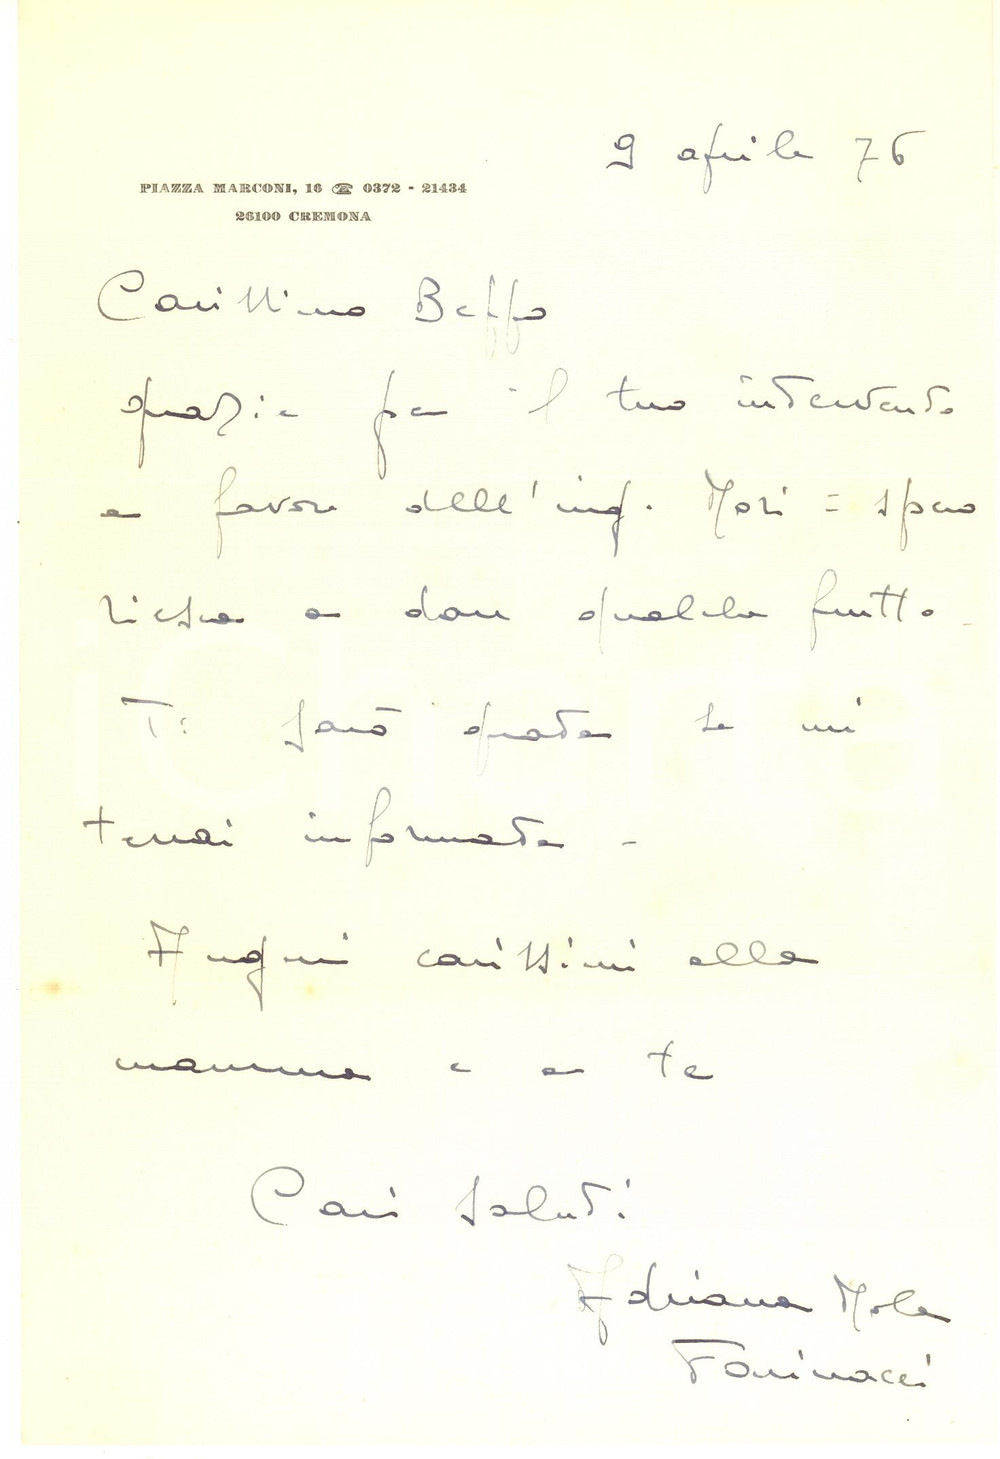 9 aprile 76
PIAZZA MARCONI, 16 ☎ 0372 - 21434
26100 CREMONA
Carissimo Beppo
grazie per il tuo intervento
a favore dell'ing. Mori = spero
riesca a dare qualche frutto.
Ti sarò grata se mi
terrai informata -
Auguri carissimi alla
mamma e a te
Cari saluti
Adriana Mola
Farinacci
iCharta